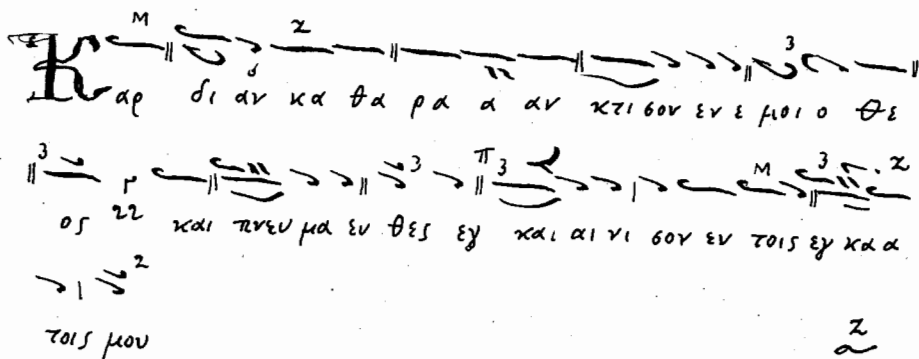 Καρ δι αν κα θα ρα α αν κτι σον εν ε μοι ο θε
ος 22 και πνευ μα εν θες εγ και αι νι σον εν τοις εγ κα α
τοις μου